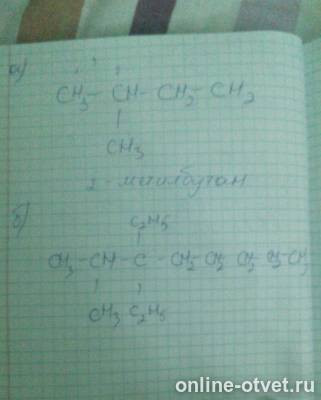 а)
CH3 - CH - CH2 - CH2
CH3
2-метилбутан
б)
C2H5
CH3 - CH - C - CH2 - CH2 - CH2 - CH2 - CH3
CH3 C2H5
online-otvet.ru